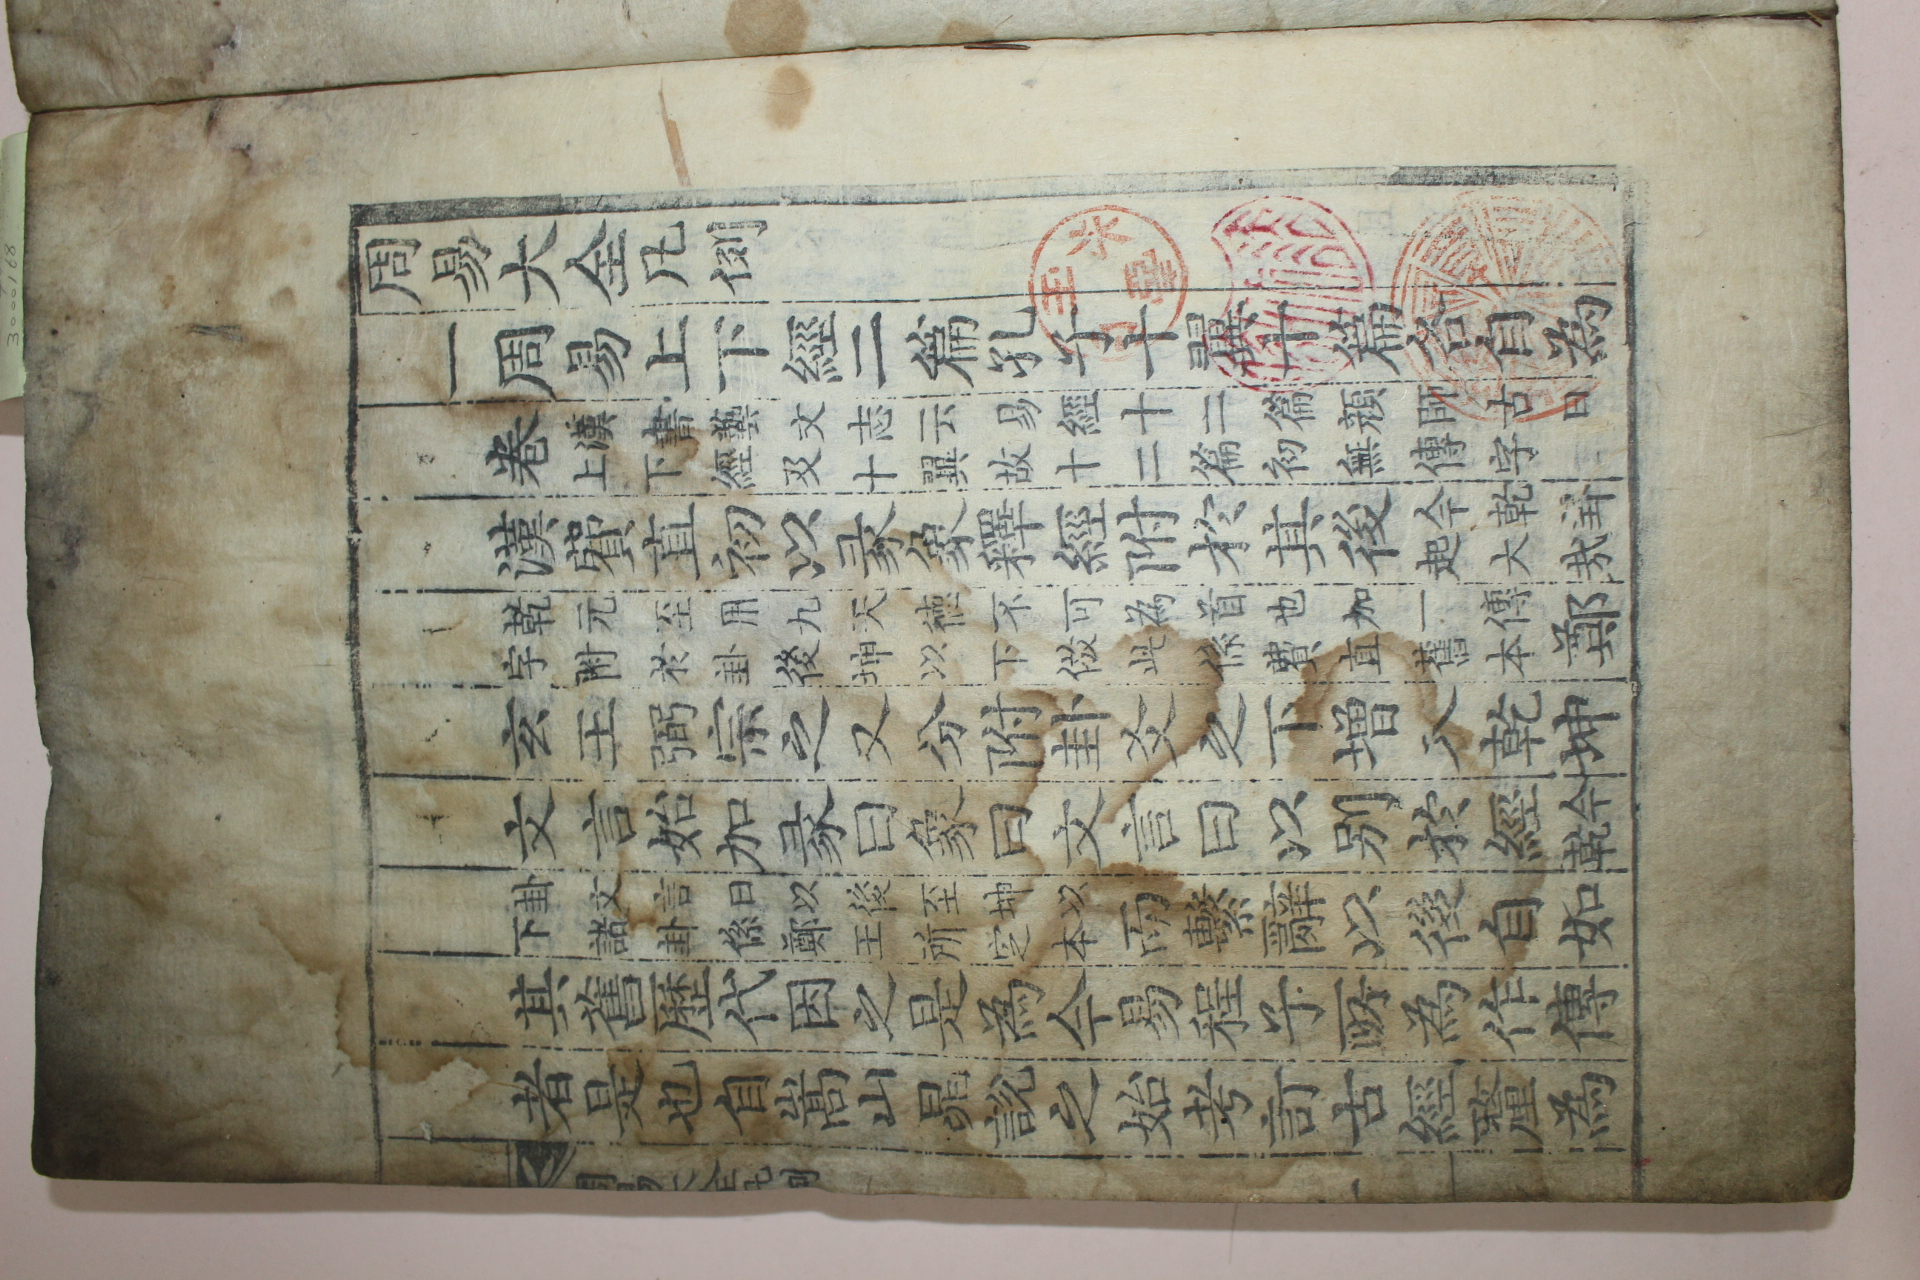 3000168
周易大全凡例
一周易上下經二篇孔子十翼十篇各自為
卷漢書藝文志云易經十二篇顔師古曰
上下經及十翼故十二篇初無傳字
漢費直初以彖象釋經附於其後今乾卦
起大㢤
乾元至用九天德不可為首也加一傳
字附於卦後坤以下倣此係費直舊本鄭
玄王弼宗之又分附卦爻之下增入乾坤
文言始加彖曰象曰文言曰以別於經今
乾
卦文言曰以後至坤以
下諸卦係鄭王所定本而繫辭以後自如
其舊歷代因之是為今易程子所為作傳
者是也自嵩山晁說之始考訂古經釐為
周易大全凡例
一